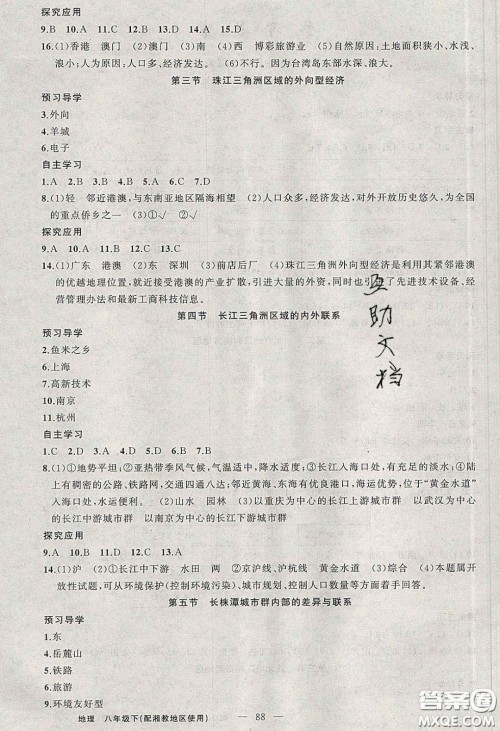 探究应用
9.B　10.A　11.C　12.B　13.C　14.A　15.D
16.(1)香港　澳门　(2)澳门　(3)南　(4)西　博彩旅游业　(5)自然原因:土地面积狭小、水浅、
浪小;人为原因:人口多,经济发达。　(6)不行。因为台湾岛东部水深、浪大。
第三节　珠江三角洲区域的外向型经济
预习导学
3.外向
4.羊城
6.电子
自主学习
1.A　2.B　3.D　4.B　5.A　6.C　7.C
8.(1)轻　邻近港澳,与东南亚地区隔海相望　(2)人口众多,经济发达,对外开放历史悠久,为全国
的重点侨乡之一　(3)①√　②√
探究应用
9.A　10.A　11.D　12.C　13.B
14.(1)广东　港澳　(2)东　深圳　(3)前店后厂　(4)珠江三角洲外向型经济是利用其紧邻港澳
的优越地理位置,就近接受港澳的产业扩散,引进大量的外资,同时也引进了先进技术设备、经
营管理办法和最新工商科技信息。
第四节　长江三角洲区域的内外联系
预习导学
2.鱼米之乡
6.上海
7.高新技术
10.南京
11.杭州
自主学习
1.A　2.A　3.D　4.C　5.B　6.C　7.D
8.(1)①地势平坦;②亚热带季风气候,气温适中,降水适度;③长江入海口处,有充足的淡水;④陆
上有稠密的公路、铁路网,交通四通八达;⑤附近海域有优良港口,海运优势,位于“黄金水道”
入海口处,水运便利。　(2)山水　园林　(3)以重庆为中心的长江上游城市群　以武汉为中心
的长江中游城市群　以南京为中心的长江下游城市群
探究应用
9.A　10.B　11.B　12.C　13.D
14.(1)沪　(2)长江中下游　水田　两　(3)②京沪线、沪杭线　黄金水道　(3)综合　(4)本题属开
放性试题,可从环境保护(控制环境污染)、城市规划、控制人口数量等方面着手回答。
第五节　长株潭城市群内部的差异与联系
预习导学
1.东
4.岳麓山
5.铁路
6.旅游
7.环境友好型
地理　八年级下(配湘教地区使用)　—　88　—
互
助
文
档
答案圈